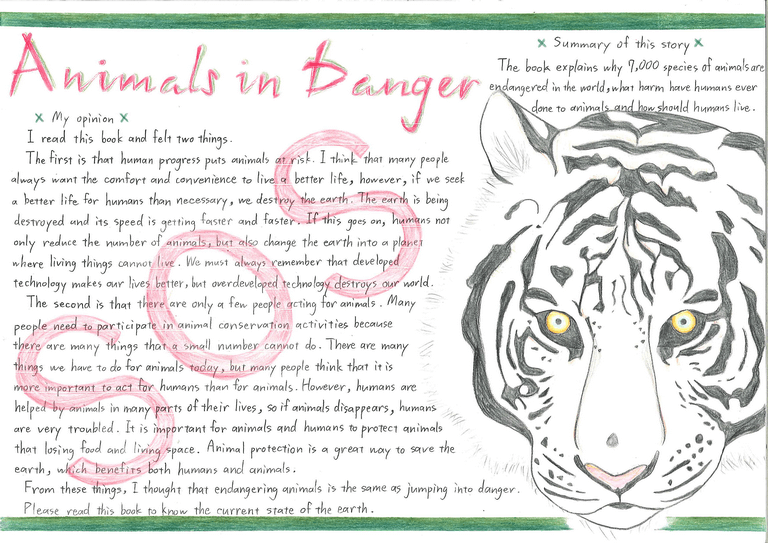 Animals in Danger
× Summary of this story ×
The book explains why 9,000 species of animals are
endangered in the world, what harm have humans ever
done to animals and how should humans live.
× My opinion ×
I read this book and felt two things.
The first is that human progress puts animals at risk. I think that many people
always want the comfort and convenience to live a better life, however, if we seek
a better life for humans than necessary, we destroy the earth. The earth is being
destroyed and its speed is getting faster and faster. If this goes on, humans not
only reduce the number of animals, but also change the earth into a planet
where living things cannot live. We must always remember that developed
technology makes our lives better, but overdeveloped technology destroys our world.
The second is that there are only a few people acting for animals. Many
people need to participate in animal conservation activities because
there are many things that a small number cannot do. There are many
things we have to do for animals today, but many people think that it is
more important to act for humans than for animals. However, humans are
helped by animals in many parts of their lives, so if animals disappears, humans
are very troubled. It is important for animals and humans to protect animals
that losing food and living space. Animal protection is a great way to save the
earth, which benefits both humans and animals.
From these things, I thought that endangering animals is the same as jumping into danger.
Please read this book to know the current state of the earth.
SOS